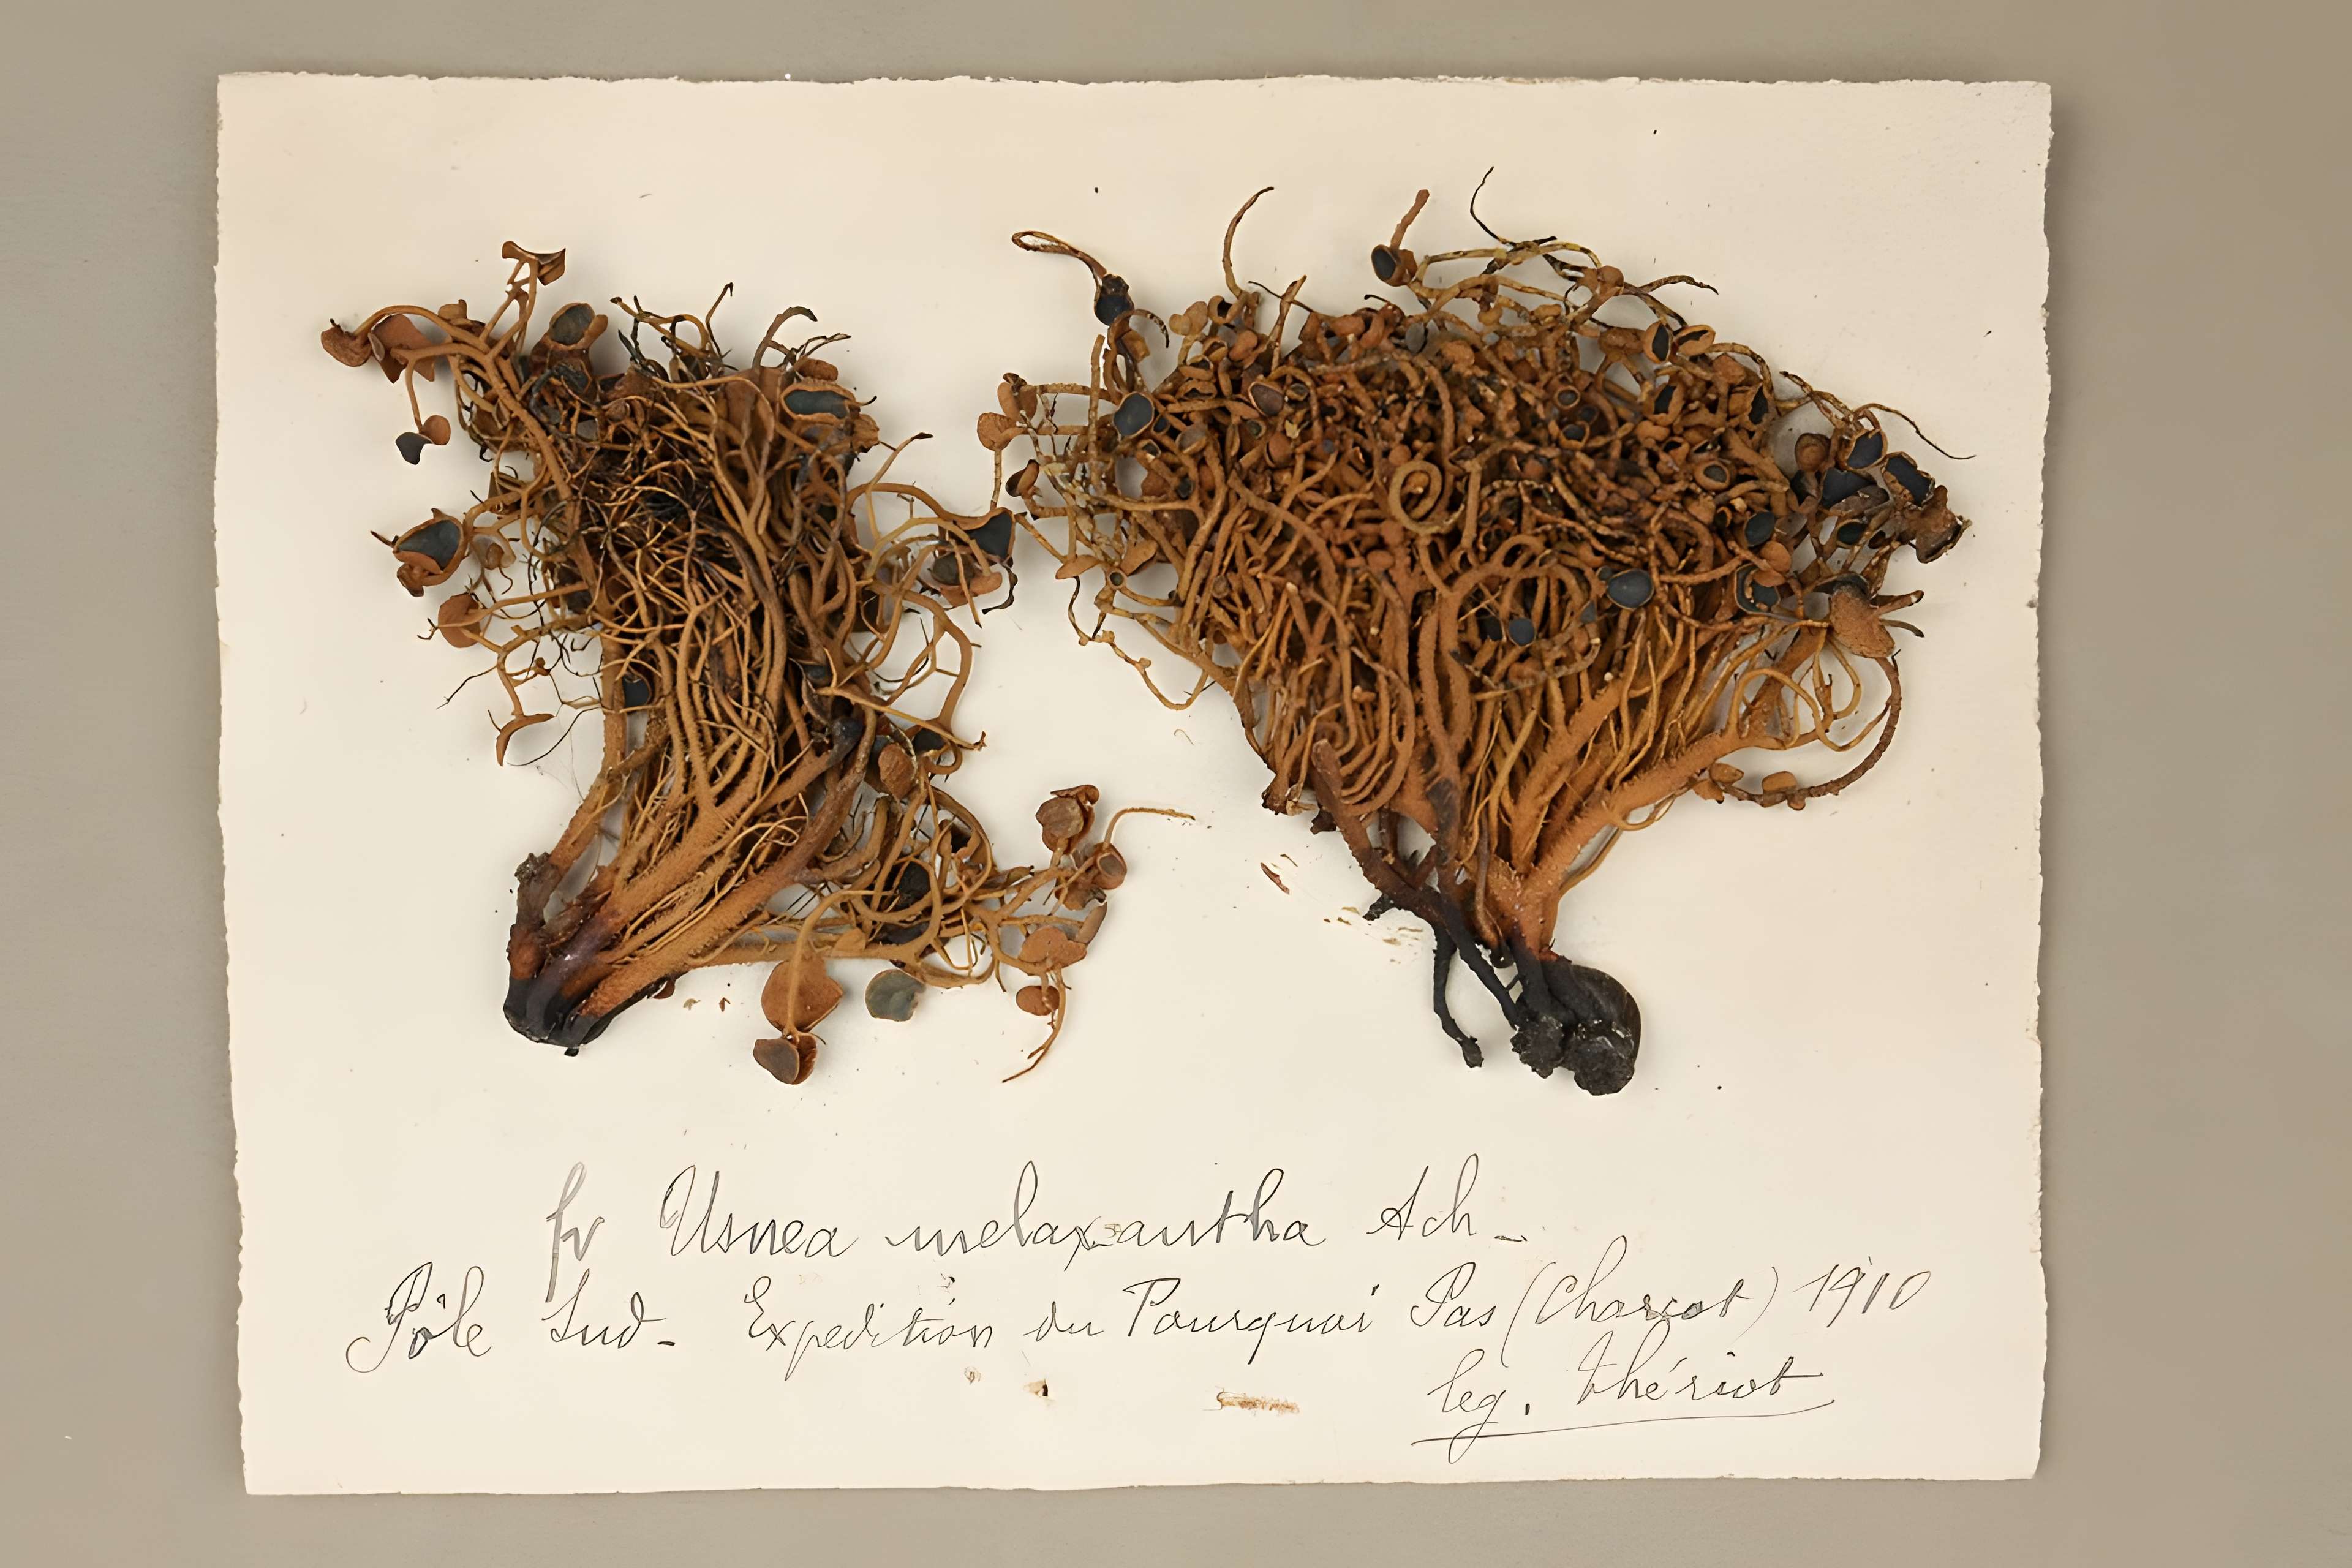 fr Usnea melaxantha Ach-
Pôle Sud- Expedition du Pourquoi Pas (Charcot) 1910
leg. thériot